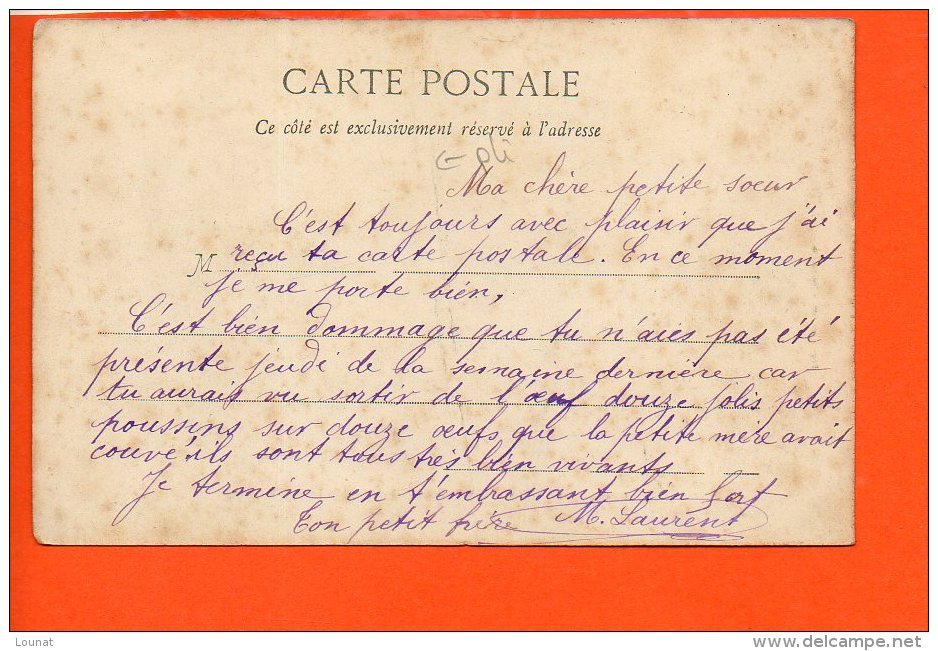 CARTE POSTALE
Ce côté est exclusivement réservé à l'adresse
Ma chère petite soeur
C'est toujours avec plaisir que j'ai
M reçu ta carte postale. En ce moment
je me porte bien,
C'est bien dommage que tu n'aies pas été
présente jeudi de la semaine dernière car
tu aurais vu sortir de l'œuf douze jolis petits
poussins sur douze œufs que la petite mère avait
couvé, ils sont tous très bien vivants
Je termine en t'embrassant bien fort
Ton petit frère M. Laurent
Lounat
www.delcampe.net